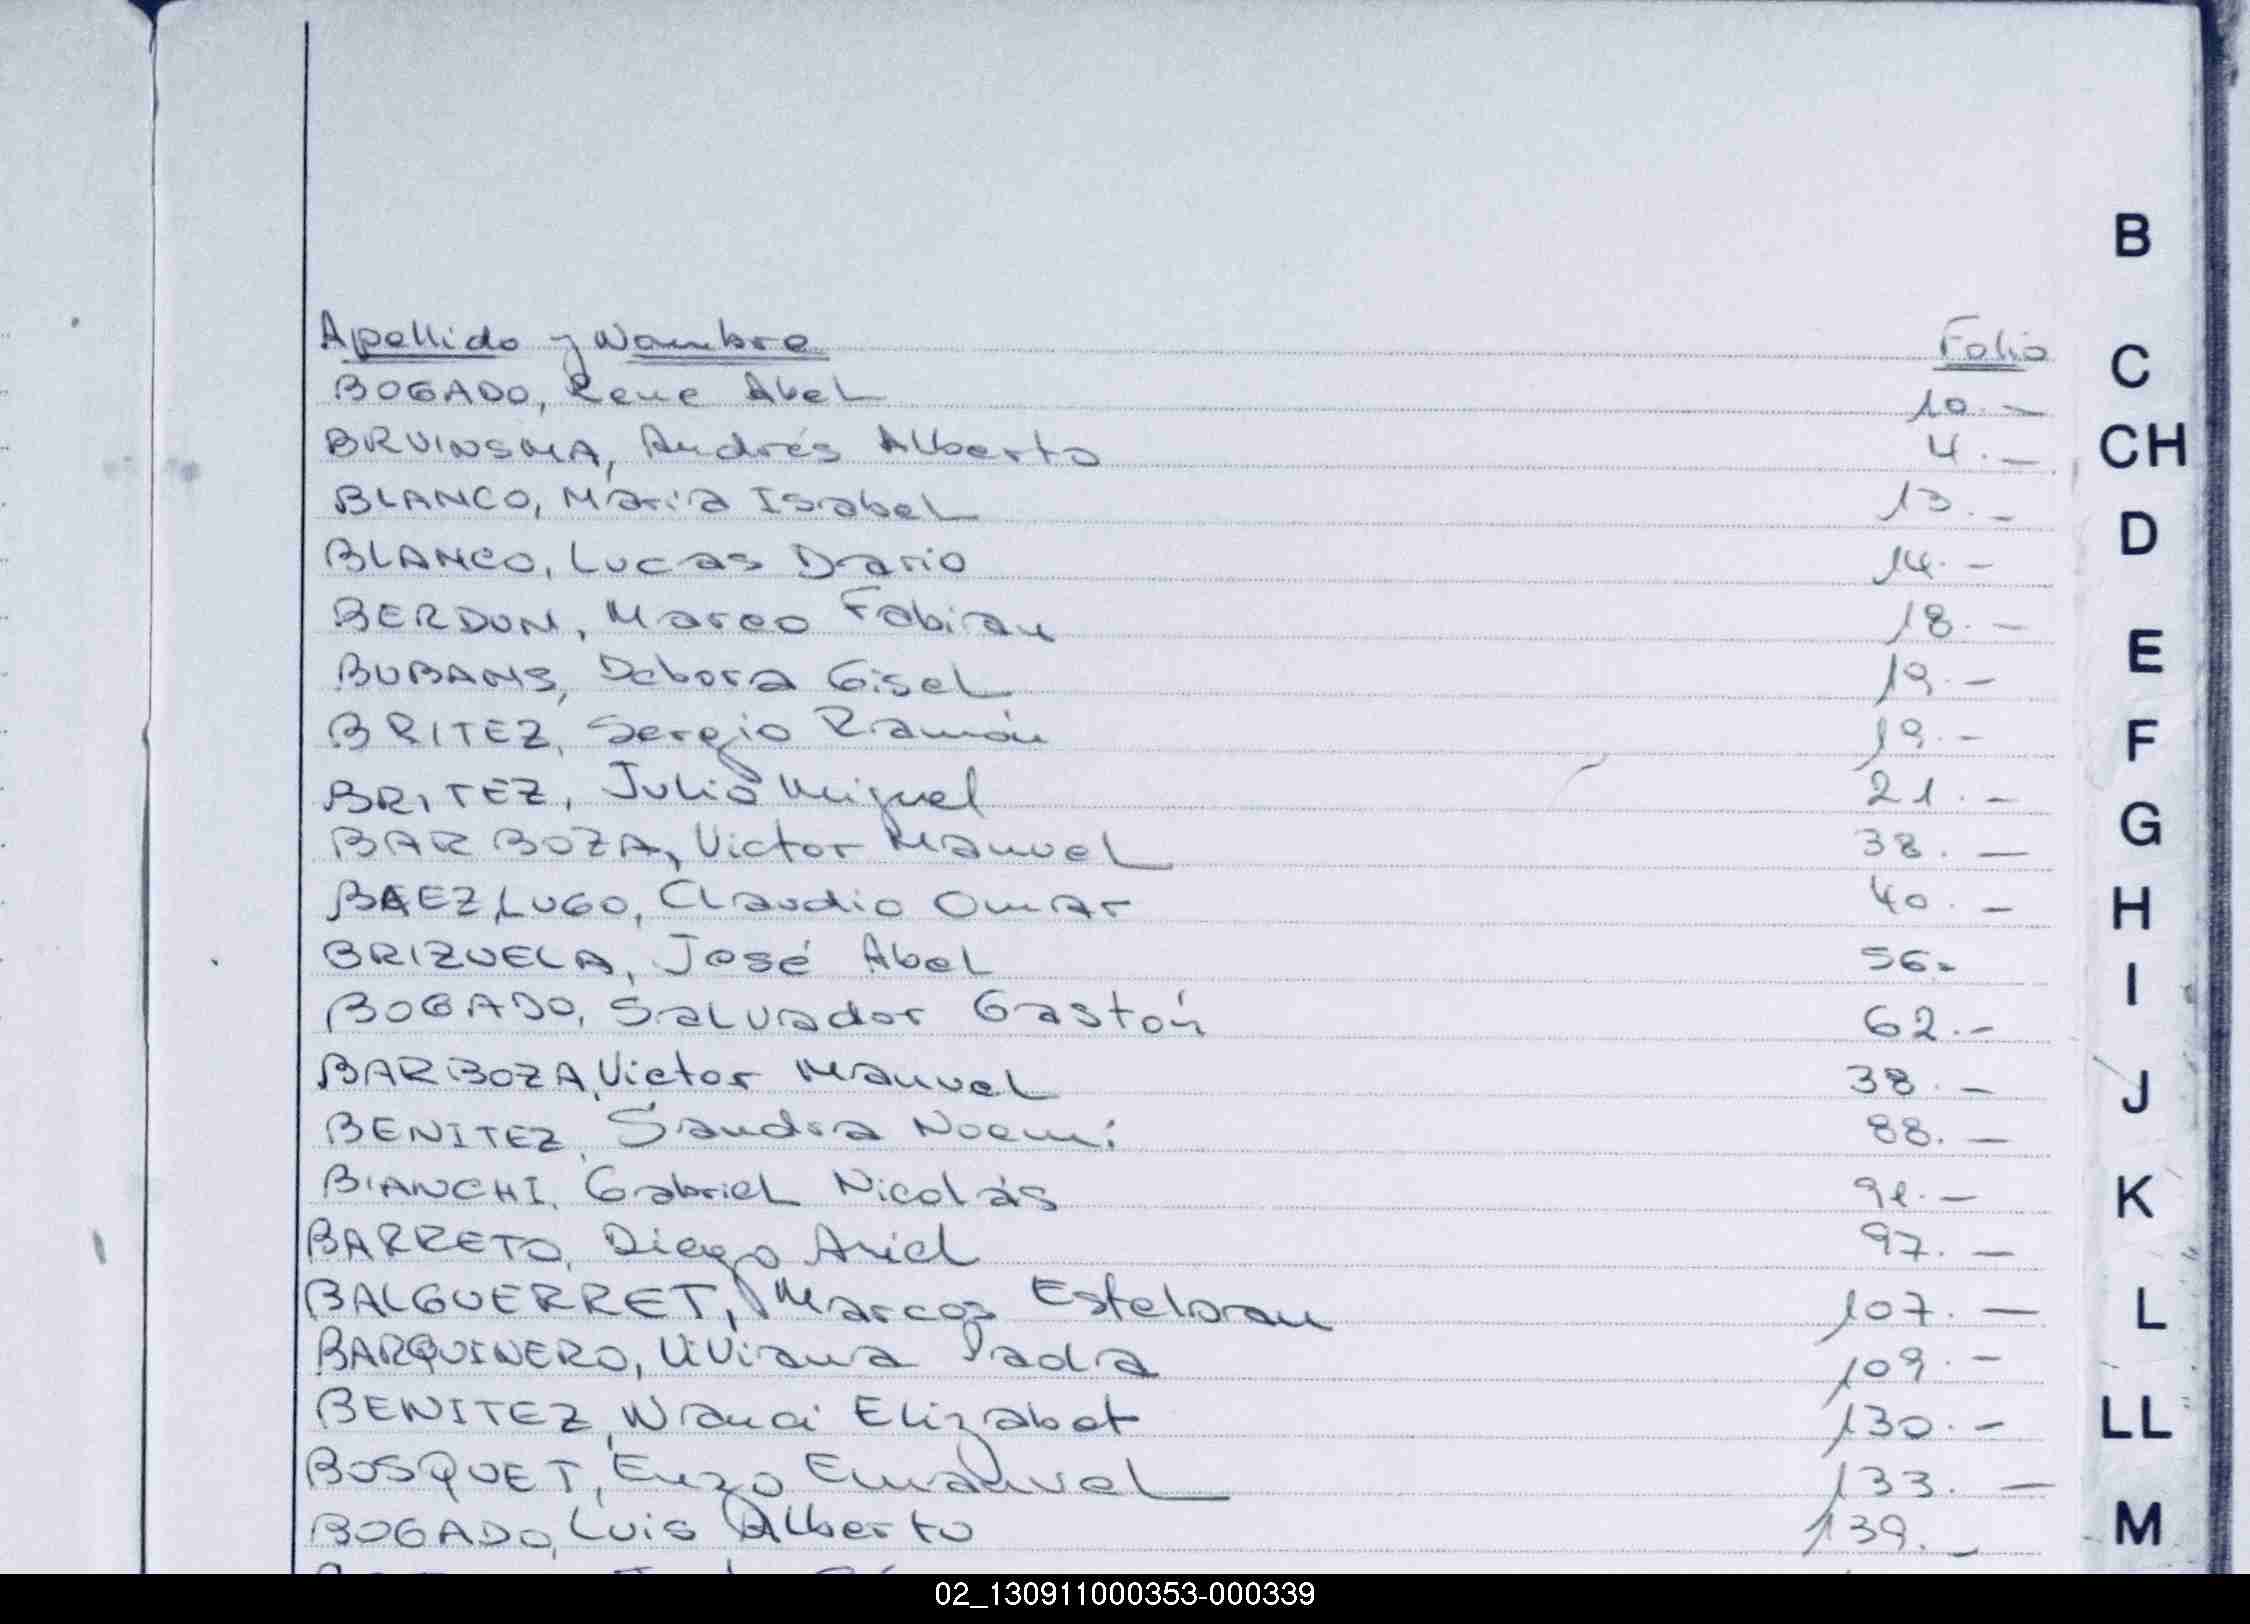 B
C
CH
D
E
F
G
H
I
J
K
L
LL
M
Apellido y Nombre Folio
BOGADO, Rene Abel 10.-
BRUINSMA, Andrés Alberto 4.-
BLANCO, Maria Isabel 13.-
BLANCO, Lucas Dario 14.-
BERDUN, Marco Fabian 18.-
BUBANS, Debora Gisel 19.-
BRITEZ, Sergio Ramón 19.-
BRITEZ, Julio Miguel 21.-
BARBOZA, Victor Manuel 38.-
BAEZ, LUGO, Claudio Omar 40.-
BRIZUELA, José Abel 56.-
BOGADO, Salvador Gastón 62.-
BARBOZA, Victor Manuel 38.-
BENITEZ, Sandra Noemí 88.-
BIANCHI, Gabriel Nicolás 91.-
BARRETO, Diego Ariel 97.-
BALGUERRET, Marcos Esteban 107.-
BARQUINERO, Viviana 109.-
BENITEZ, Nanci Elizabet 130.-
BOSQUET, Enzo Emanuel 133.-
BOGADO, Luis Alberto 139.-
02_130911000353-000339